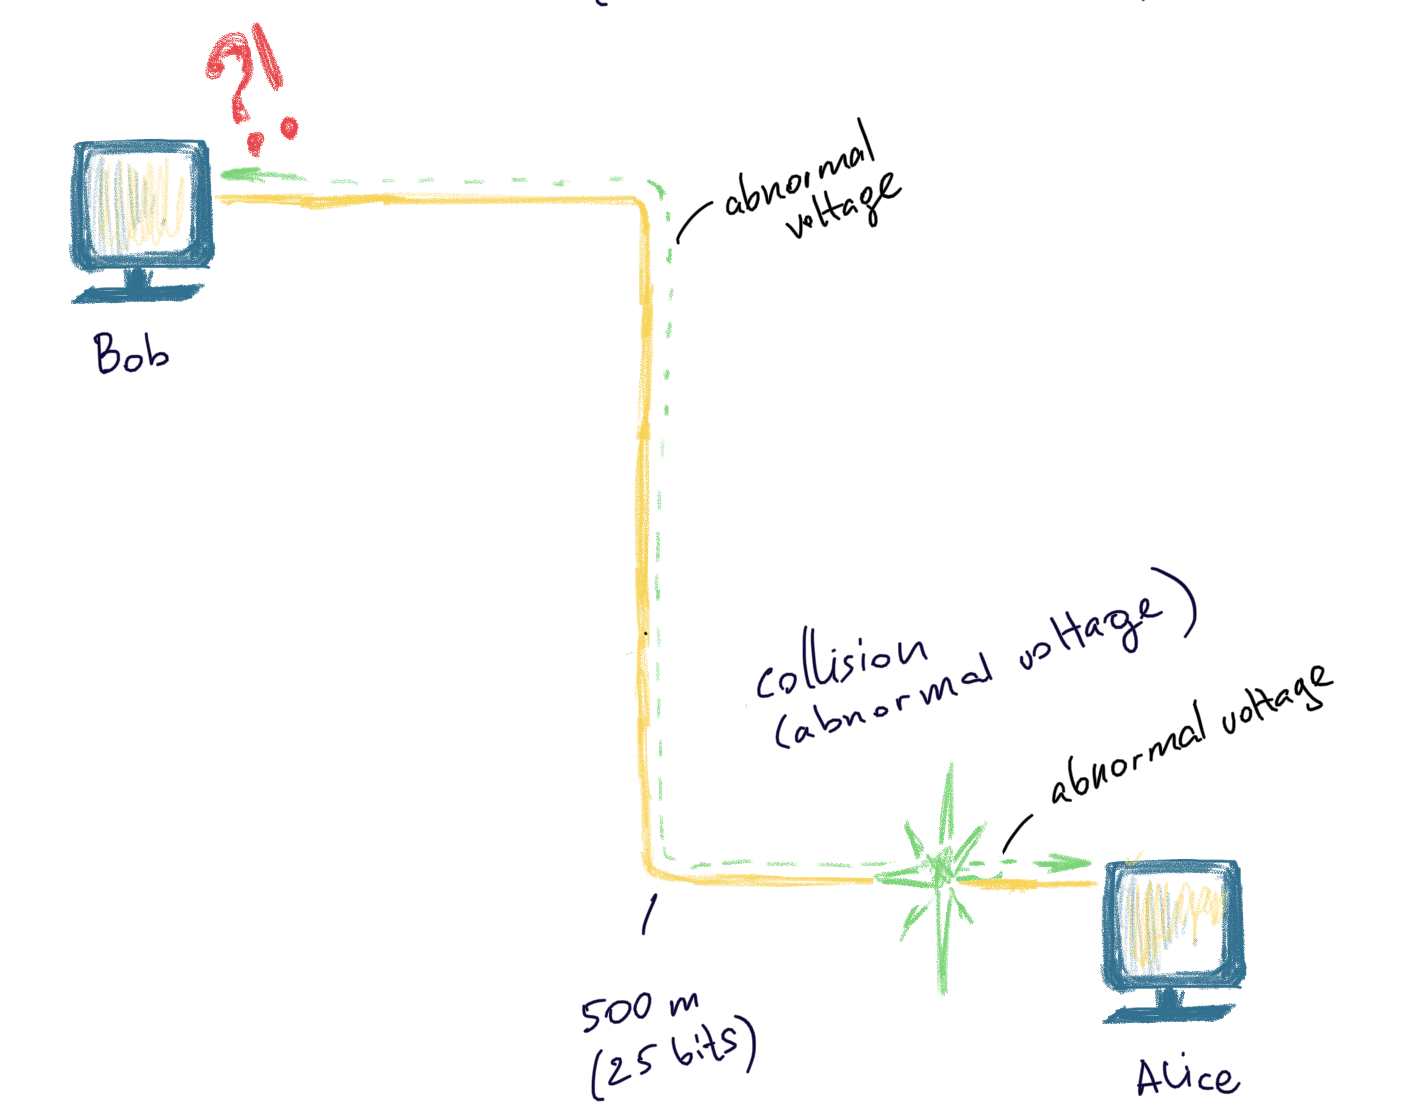 ?!
Bob
abnormal
voltage
collision
(abnormal voltage)
abnormal voltage
500 m
(25 bits)
Alice